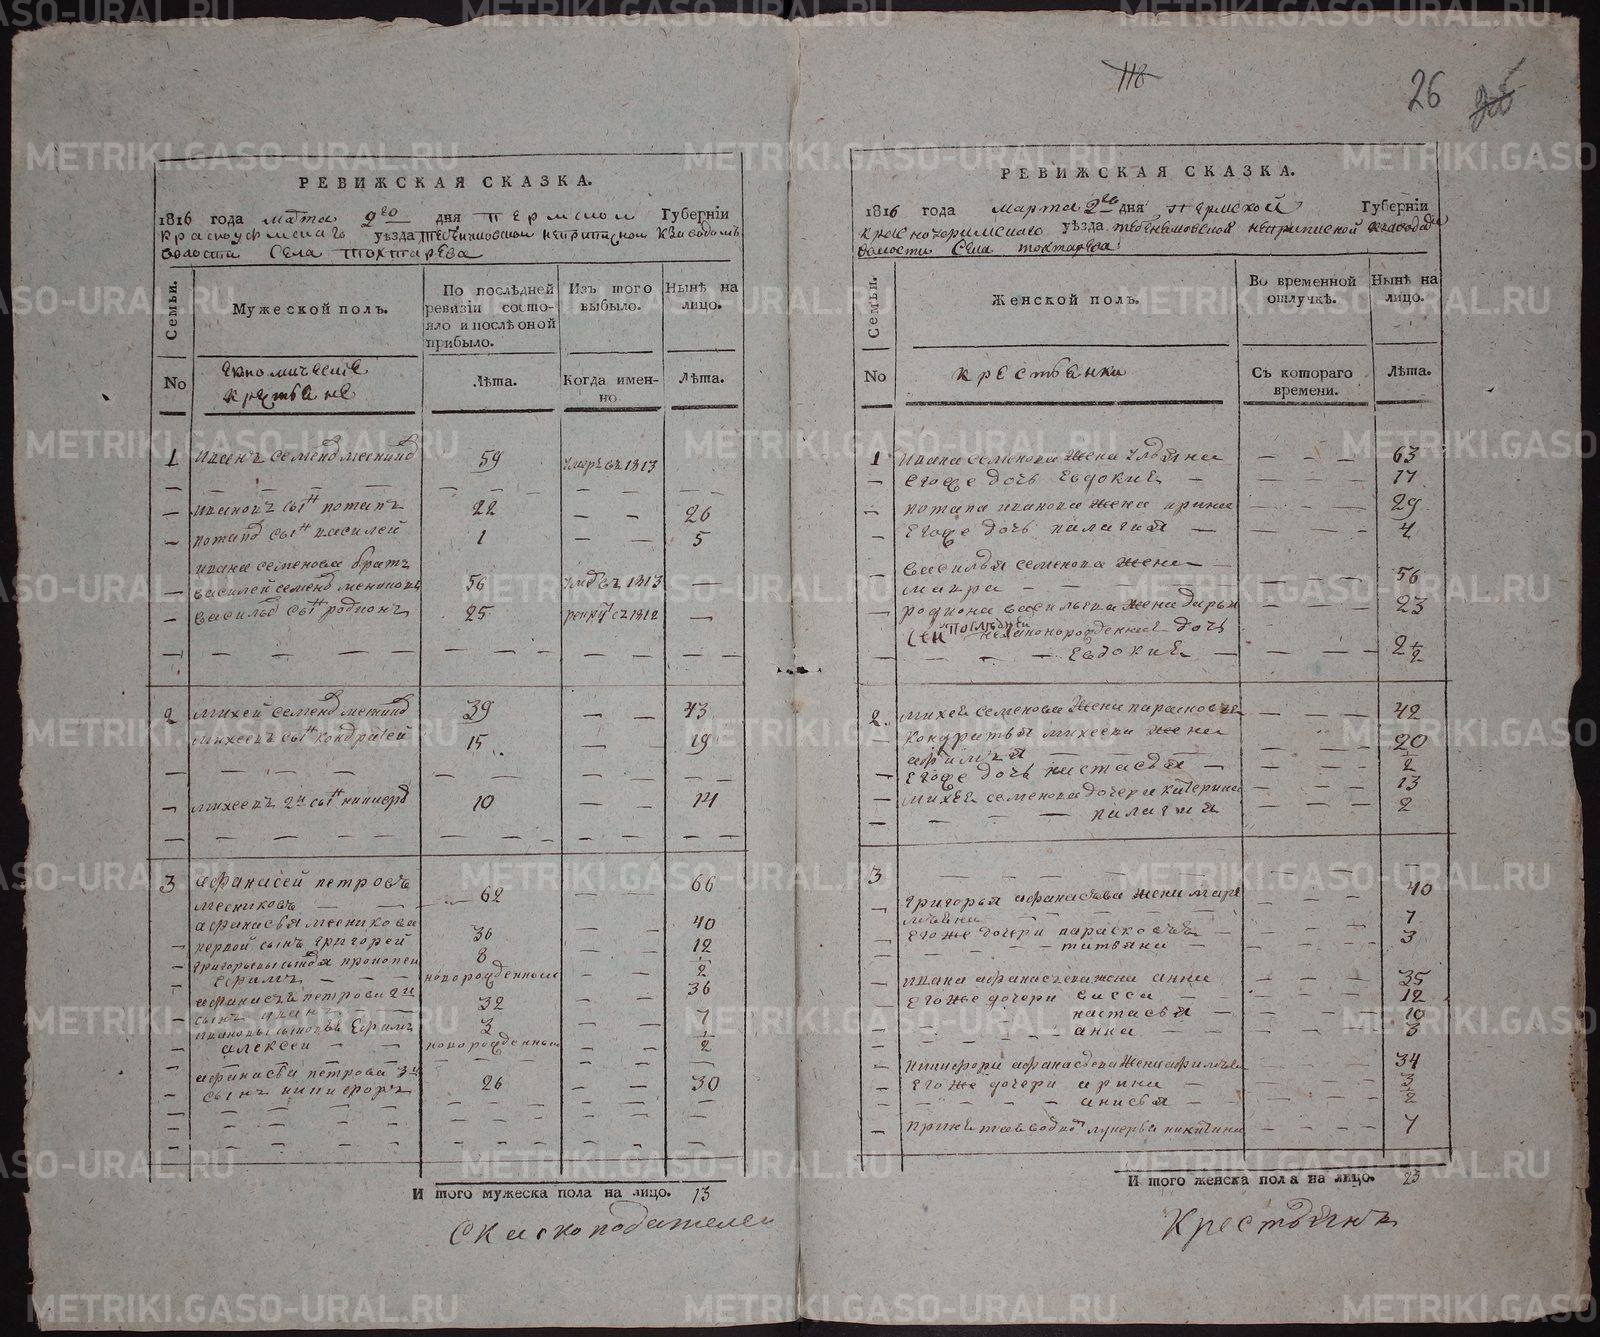 118
26
РЕВИЖСКАЯ СКАЗКА.
1816 года марта 2го дня Пермской Губернїи
Красноуфимскаго уѣзда
волости Села Тохтарева
Семьи.
Мужеской полъ.
По послѣдней ревизїи состояло и послѣ оной прибыло.
Изъ того выбыло.
Нынѣ на лицо.
No
економические крестьяне
Лѣта.
Когда именно
Лѣта.
1 Иванъ Семенов 59 умеръ въ 1813
Ивановъ сынъ потапъ 22 — — 26
потапов сынъ василей 1 — — 5
ивана семенова братъ
василей семенов 56 1813 —
василья сынъ родионъ 25 1812 —
2 михей семенов 39 — — 43
михеевъ сынъ кондратей 15 — 19
михеевъ 2й сынъ 10 — — 14
3 афанасей петровъ 66
месниковъ — — 62
афанасья месникова 40
первой сынъ григорей 36 — — 12
григорьевы сыновья прокопей 8 — — 1/2
ефимъ — новорожденный — — 36
афанасья петрова 2й
сынъ иванъ 32 — — 7
ивановы сыновья Ефимъ 3 — — 1/2
алексей — — новорожденный
афанасья петрова 3й
сынъ никифоръ 26 — — 30
И того мужеска пола на лицо. 13
Скаскоподателей
РЕВИЖСКАЯ СКАЗКА.
1816 года марта 2го дня Пермской Губернїи
Красноуфимскаго уѣзда
волости Села тохтарева
Семьи.
Женской полъ.
Во временной отлучкѣ.
Нынѣ на лицо.
No
крестьянки
Съ котораго времени.
Лѣта.
1 Ивана семенова жена ульяна — — — 63
Егоже дочь Евдокия — — — 17
потапа иванова жена ирина — — — 29
Егоже дочь палагия — — — 4
василья семенова жена
мавра — — — 56
родиона васильева жена дарья — — — 23
дочь
Евдокия — — — 2 1/2
2. михея семенова жена парасковья — — — 42
кондратья михеева жена — — — 20
афимья 1/2
Егоже дочь настасья — — — 13
михея семенова дочери катерина
палагия — — — 2
3
григорья афанасьева жена 40
7
Егоже дочери парасковья — 3
татьяна —
ивана афанасьева жена анна 35
Егоже дочери васса — 12
настасья — 10
анна — 3
никифора афанасьева жена афимья 34
Егоже дочери арина — 3
анисья — 1/2
лукерья никитина — — — 7
И того женска пола на лицо. 23
Крестьянъ
METRIKI.GASO-URAL.RU